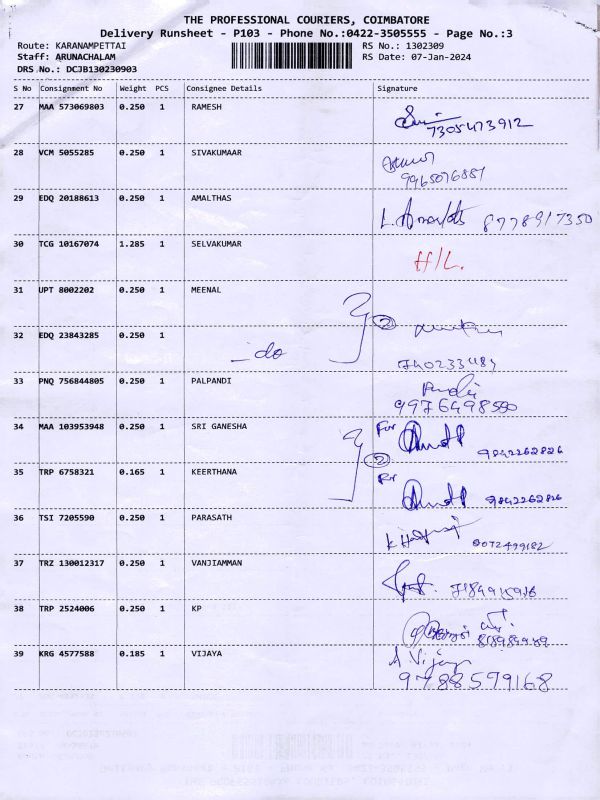 THE PROFESSIONAL COURIERS, COIMBATORE
Delivery Runsheet - P103 - Phone No.:0422-3505555 - Page No.:3
Route: KARANAMPETTAI RS No.: 1302309
Staff: ARUNACHALAM RS Date: 07-Jan-2024
DRS No.: DCJB130230903
S No Consignment No Weight PCS Consignee Details Signature
27 MAA 573069803 0.250 1 RAMESH
7305473912
28 VCM 5055285 0.250 1 SIVAKUMAAR
9965076887
29 EDQ 20188613 0.250 1 AMALTHAS
8778917350
30 TCG 10167074 1.285 1 SELVAKUMAR H/L.
31 UPT 8002202 0.250 1 MEENAL
2
32 EDQ 23843285 0.250 1
do
33 PNQ 756844805 0.250 1 PALPANDI
9976498550
34 MAA 103953948 0.250 1 SRI GANESHA For
9842262826
2
35 TRP 6758321 0.165 1 KEERTHANA For
9842262826
36 TSI 7205590 0.250 1 PARASATH
37 TRZ 130012317 0.250 1 VANJIAMMAN
38 TRP 2524006 0.250 1 KP
39 KRG 4577588 0.185 1 VIJAYA A Vijaya
9788579168